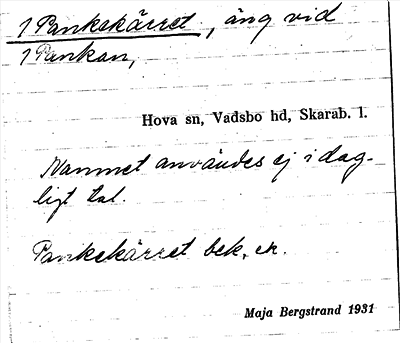 1 Pankekärret, äng vid
1 Pankan,
Hova sn, Vadsbo hd, Skarab. l.
Namnet användes ej i dag-
ligt tal.
Pankekärret bek, en.
Maja Bergstrand 1931